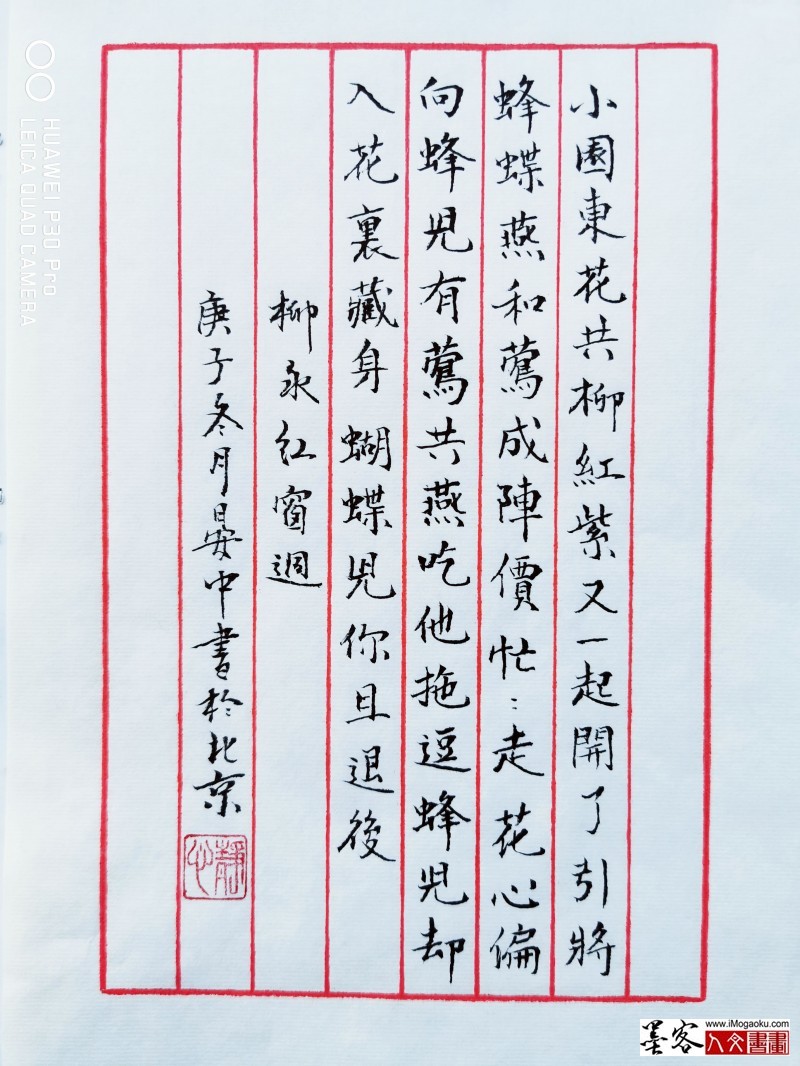 小園東花共柳紅紫又一起開了引將
蜂蝶燕和鶯成陣價忙〻走花心偏
向蜂兒有鶯共燕吃他拖逗蜂兒却
入花裏藏身蝴蝶兒你且退後
柳永紅窗迥
庚子冬月晏中書於北京
靜心
HUAWEI P30 Pro
LEICA QUAD CAMERA
墨客
www.iMogaoku.com
人文書畫